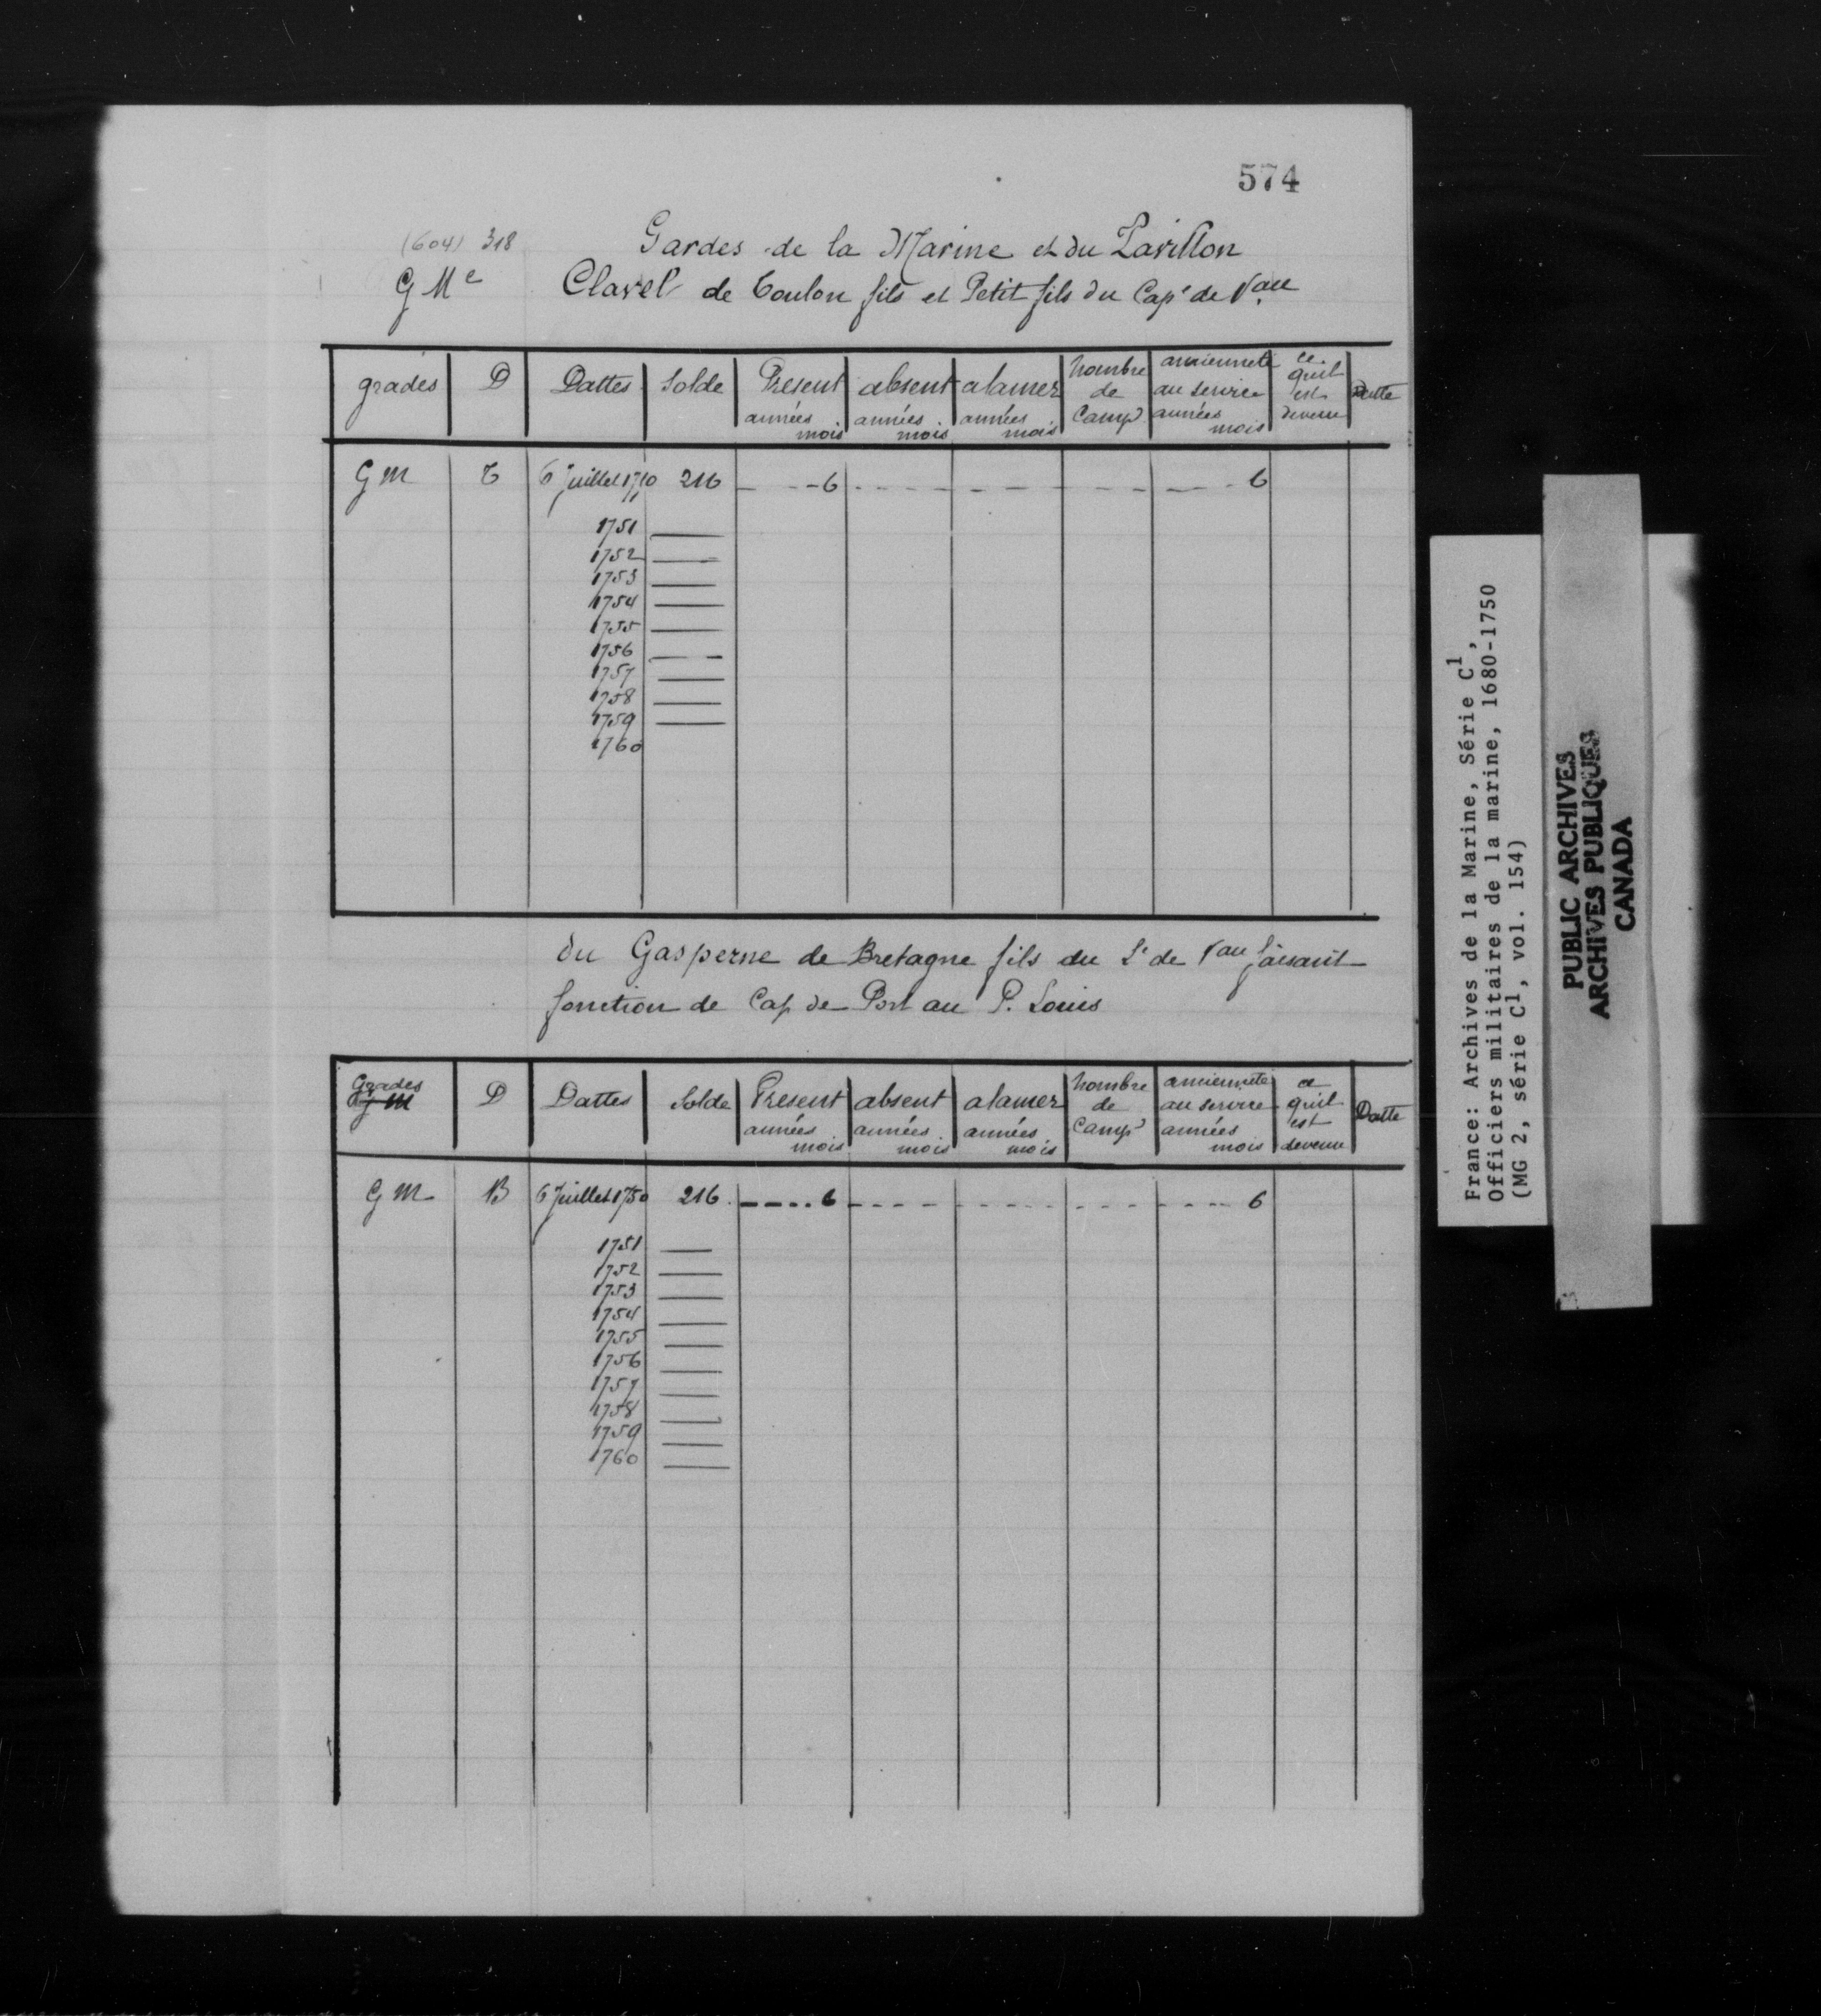 574
(604) 318
Gardes de la Marine et du Pavillon
G Me
Clavel de Toulon fils et Petit fils du Cape de Vau
grades D Dattes Solde Present absent alamer Nombre de Camp ancienneté au service ce qu'il est devenu Datte
années mois années mois années mois années mois
G M T 6 Juillet 1710 216 6 6
1751
1752
1753
1754
1755
1756
1757
1758
1759
1760
du Gasperne de Bretagne fils du Lt de Vau faisant
fonction de Cap de Port au P. Louis
Grades D Dattes Solde Present absent alamer Nombre de Camp ancienneté au service ce qu'il est devenu Datte
G M
années mois années mois années mois années mois
G M B 6 Juillet 1750 216 6 6
1751
1752
1753
1754
1755
1756
1757
1758
1759
1760
France: Archives de la Marine, Série C1,
Officiers militaires de la marine, 1680-1750
(MG 2, série C1, vol. 154)
PUBLIC ARCHIVES
ARCHIVES PUBLIQUES
CANADA